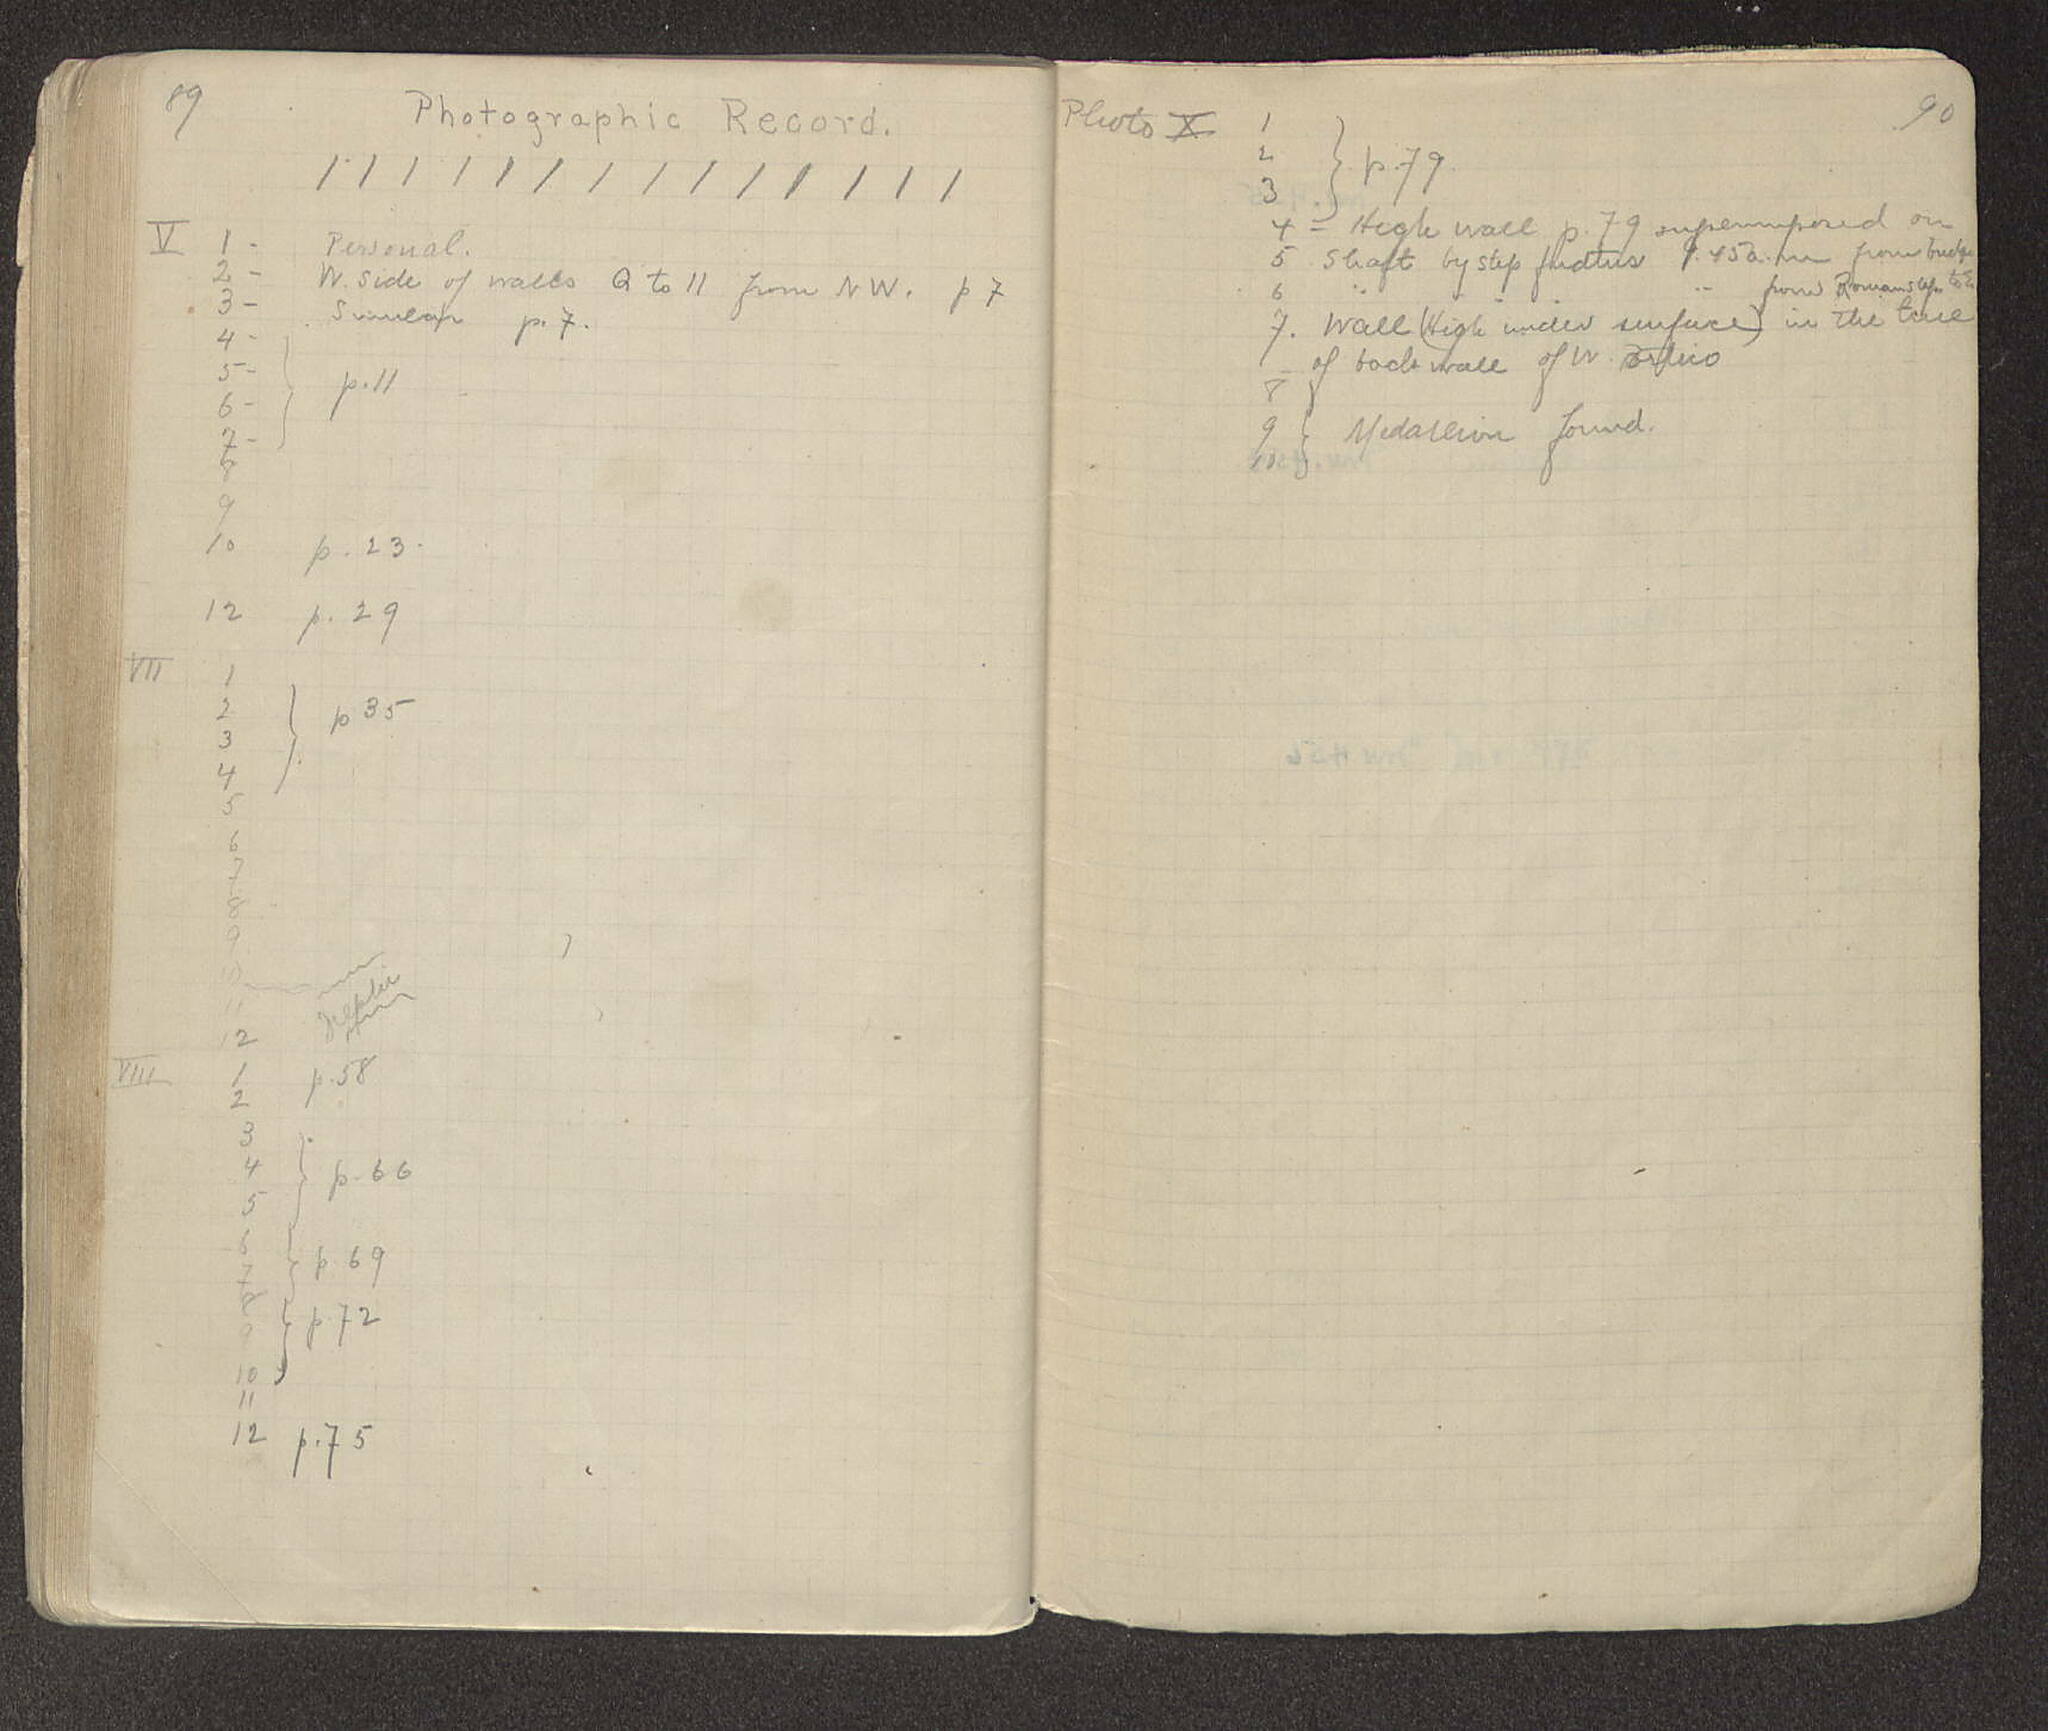 89
Photographic Record.
V 1 - Personal.
2 - W. Side of walls Q to 11 from NW. p 7
3 - Similar p. 7.
4 -
5 -
6 - p.11
7 -
8
9
10 p. 23.
12 p. 29
VII 1
2
3 p 35
4
5
6
7
8
9
10
11
12
VIII 1 p.58
2
3
4 p. 66
5
6
7 p. 69
8
9 p. 72
10
11
12 p. 75
90
Photo X 1
2 p. 79
3
4 = High wall p. 79 superimposed on
5 Shaft by step 9.45 a.m from bridge
6 " " " " from Roman steps to E
7. Wall (High under surface) in the line
of back wall of W.
8
9 Medallion found.
10